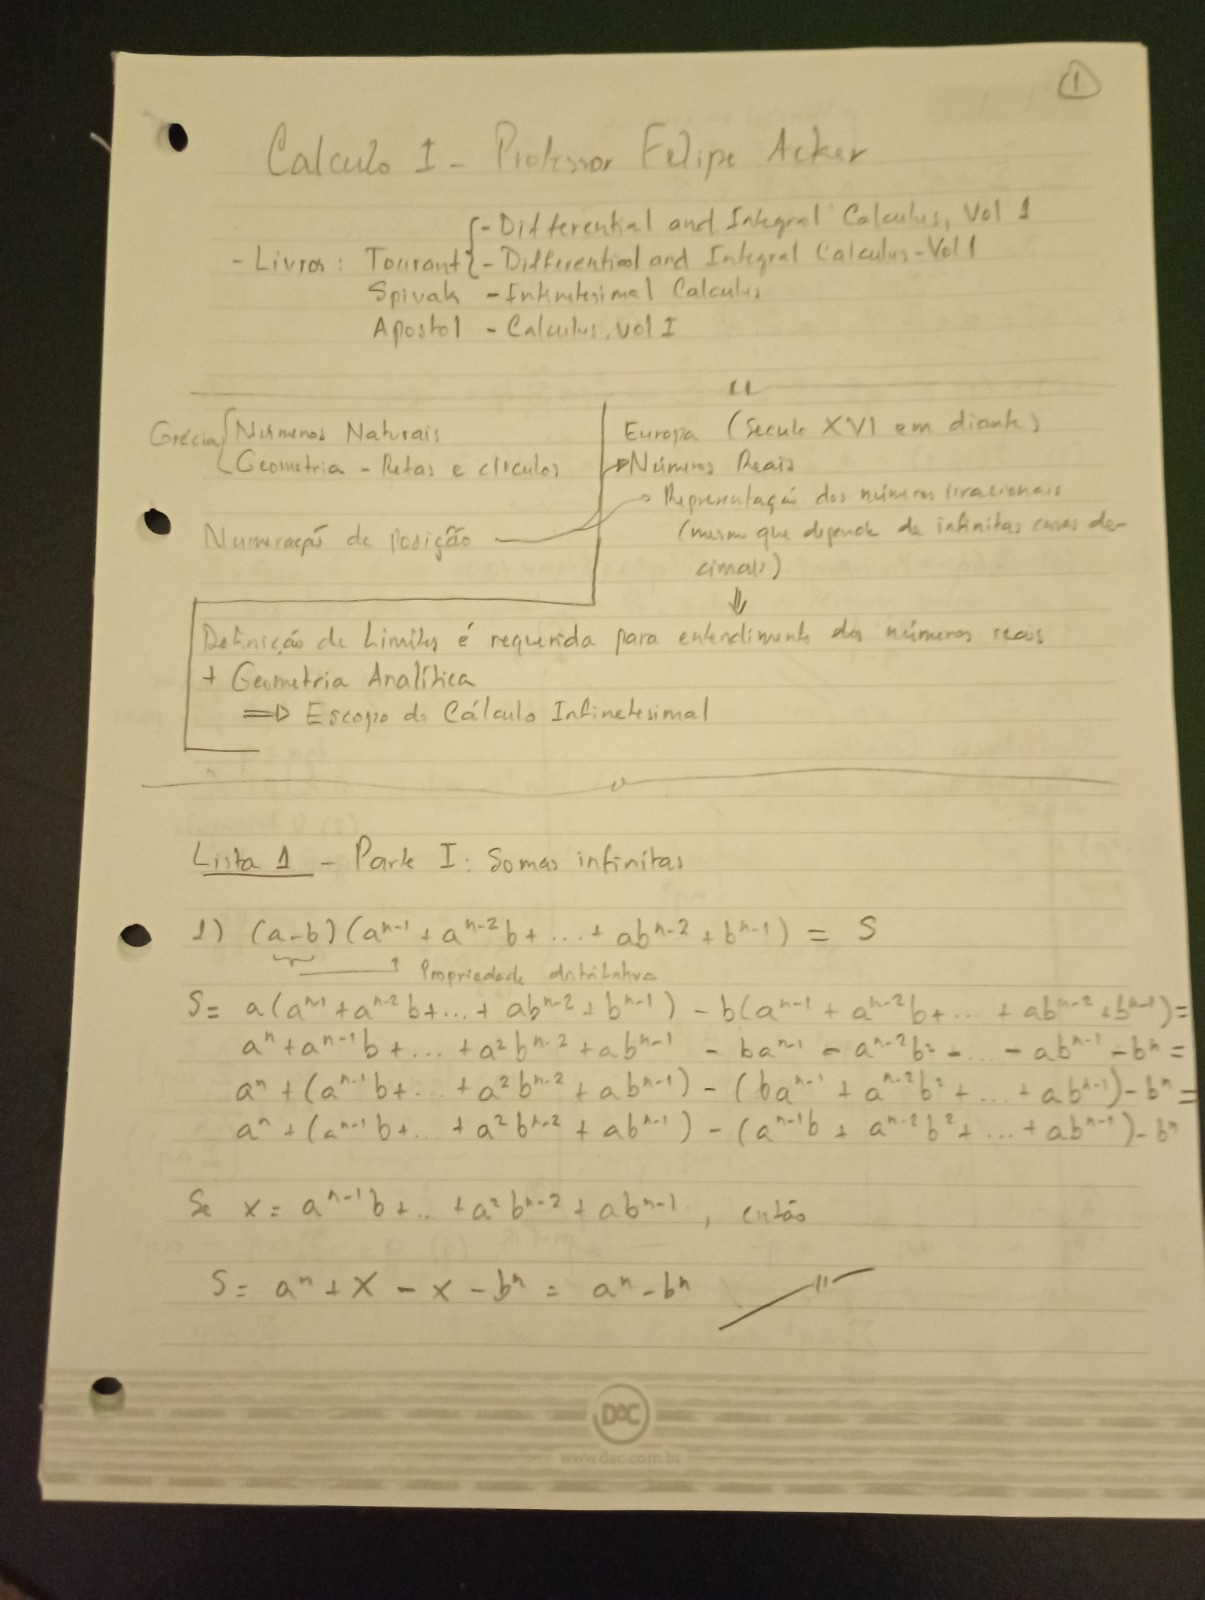 1
Calculo I - Professor Felipe Acker
- Differential and Integral Calculus, Vol 1
- Livros: Tourant - Differential and Integral Calculus - Vol 1
Spivak - Infinitesimal Calculus
Apostol - Calculus, vol I
Grécia Números Naturais
Geometria - Retas e círculos
Numeração de Posição
Europa (Seculo XVI em diante)
Números Reais
Representação dos números irracionais
(mesmo que depende de infinitas casas de-
cimais)
⇓
Definição de Limites é requerida para entendimento dos números reais
+ Geometria Analítica
⇒ Escopo do Cálculo Infinetesimal
Lista 1 - Parte I: Somas infinitas
1) (a-b)(aⁿ⁻¹ + aⁿ⁻²b + ... + abⁿ⁻² + bⁿ⁻¹) = S
Propriedade distributiva
S = a(aⁿ⁻¹ + aⁿ⁻²b + ... + abⁿ⁻² + bⁿ⁻¹) - b(aⁿ⁻¹ + aⁿ⁻²b + ... + abⁿ⁻² + bⁿ⁻¹) =
aⁿ + aⁿ⁻¹b + ... + a²bⁿ⁻² + abⁿ⁻¹ - baⁿ⁻¹ - aⁿ⁻²b² - ... - abⁿ⁻¹ - bⁿ =
aⁿ + (aⁿ⁻¹b + ... + a²bⁿ⁻² + abⁿ⁻¹) - (baⁿ⁻¹ + aⁿ⁻²b² + ... + abⁿ⁻¹) - bⁿ =
aⁿ + (aⁿ⁻¹b + ... + a²bⁿ⁻² + abⁿ⁻¹) - (aⁿ⁻¹b + aⁿ⁻²b² + ... + abⁿ⁻¹) - bⁿ
Se x = aⁿ⁻¹b + .. + a²bⁿ⁻² + abⁿ⁻¹, então
S = aⁿ + x - x - bⁿ = aⁿ - bⁿ
DAC
www.dac.com.br